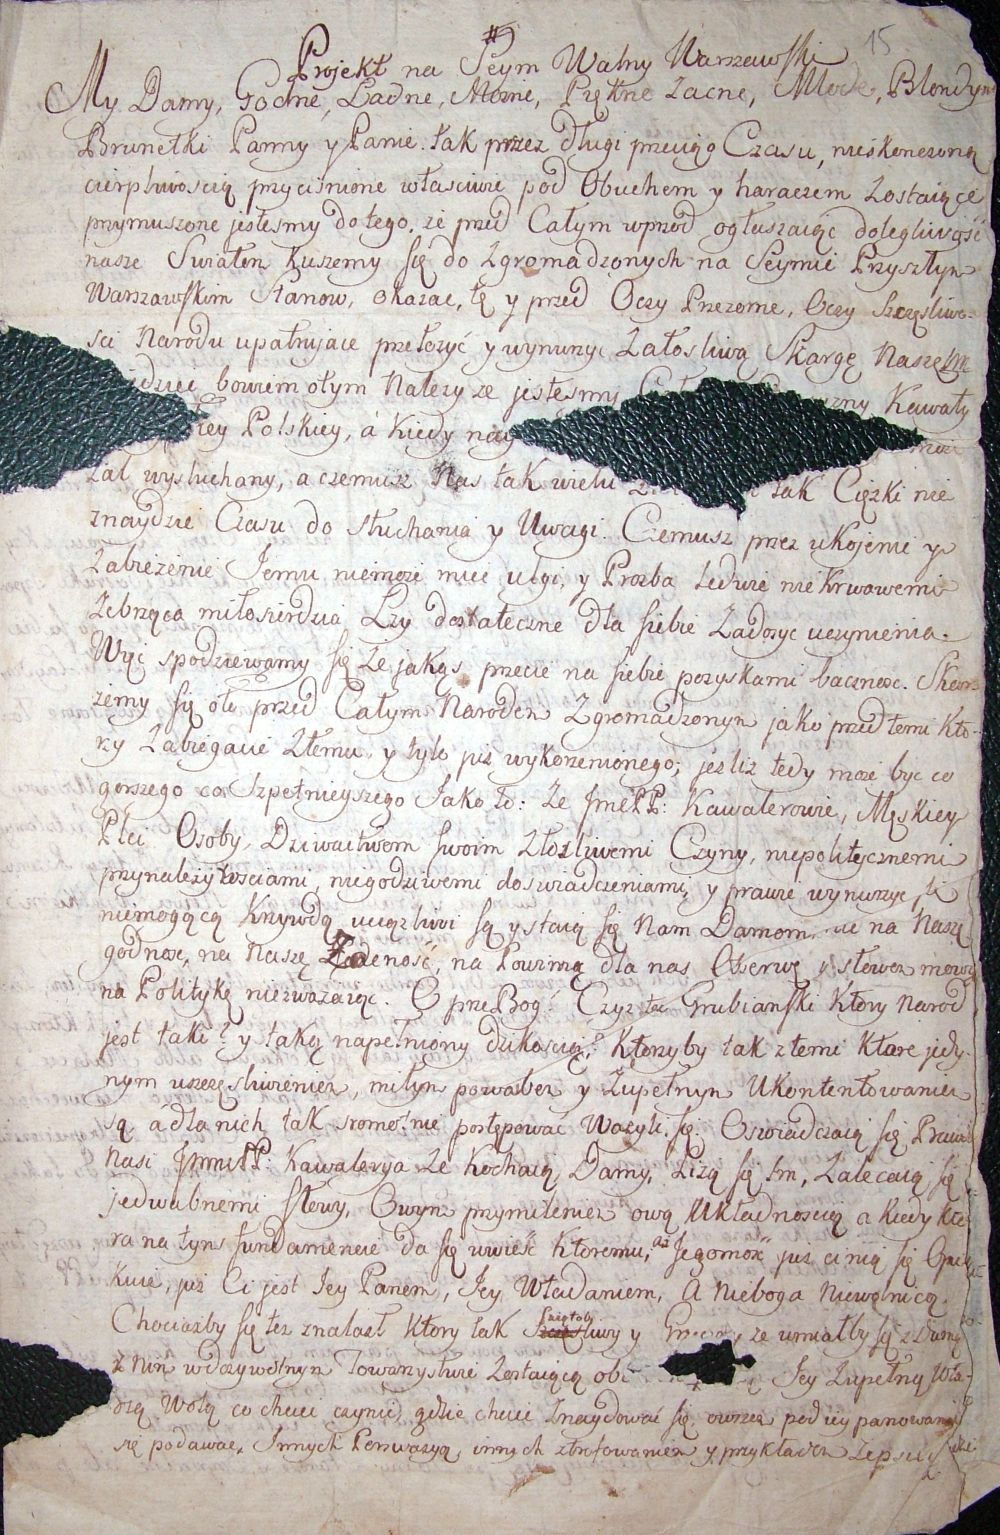 15
Projekt na Seym Walny Warszawski
My Damy, Godne, Ładne, Możne, Piękne Zacne, Młode, Blondyn
Brunetki Panny y Panie. tak przez długi przeciąg Czasu, nieskonczoną
cierpliwoscią przycisnione własciwie pod Obuchem y haraczem Zostaiące
przymuszone jestesmy do tego, że przed Całym wprzod ogłaszaiąc dolegliwość
nasze Swiatem kuszemy się do Zgromadzonych na Seymie Przyszłym
Warszawskim Stanow, okazac, tę y przed Oczy Oczy Szczęsliwo-
sci Narodu upatrujące przełozyć y wynurzyc Załosliwą Skargę Naszę
bowiem o tym Nalezy ze jestesmy Kawały
rey Polskiey, á kiedy nay
Zal wysłuchany, a czemusz Nas tak wielu tak Cięzki nie
znaydzie Czasu do słuchania y Uwagi. Czemusz przez ukojenie y
Zabieżenie Jemu niemoze miec ulgi, y Prozba ledwie nie krwawemi
Zebrząca miłosierdzia Łzy dostateczne dla siebie Zadosyc uczynienia.
Więc spodziewamy się Ze jakąs przecie na siebie pozyskami bacznosc. Skar-
żemy się oto przed Całym Narodem Zgromadzonym jako przed temi kto-
rzy Zabiegacie Złemu y tylo juz wykorzenionego; jesliż tedy może byc co
gorszego co Szpetnieyszego Jako to: Ze JmcPP: Kawalerowie, Męskiey
Płci Osoby, Dziwactwem swoim Złosliwemi Czyny, niepolitycznemi
przynależytosciami, niegodziwemi doswiadczeniami y prawie wynurzyc się
niemogącą Krzywdą uciązliwi są y staią się Nam Damom, nie na Naszą
godnosc, na Naszę Ładność, na Powinną dla nas Obserwę y słowem mowiąc
na Politykę niezwazaiąc. O przeBog! Czy z tak Grubianski Ktory Narod
jest taki? y taką napełniony dzikoscią? Ktorzyby tak z temi Ktore jedy-
nym uszczęsliwieniem, miłym powabem y Zupełnym Ukontentowaniem
są á dla nich tak sromotnie postępowac Wazyli się. Oswiadczaią się Prawda
Nasi JmmPP: Kawalerya Ze Kochaią Damy, Liżą się Im, Zalecaią się
jedwabnemi słowy, Owym przymileniem ową Układnoscią a kiedy kto-
ra na tym fundamencie da się uwieść ktoremu, aż Jegomość juz ci nią się Opie-
kuie, już Ci jest Jey Panem, Jey Władaniem, A Nieboga Niewolnicą.
Chociazby się tez znalazł Ktory tak y ze umiałby się z Damą
z Nim w dozywotnym Towarzystwie Zostaiącą Jey Zupełną Wła-
dzą Wolą co chciec czynic, gdzie chciec Znaydować się owszem pod iey panowanie
się podawac, Innych Perswazyą, innych strofowaniem y przykładem Zepsuiy